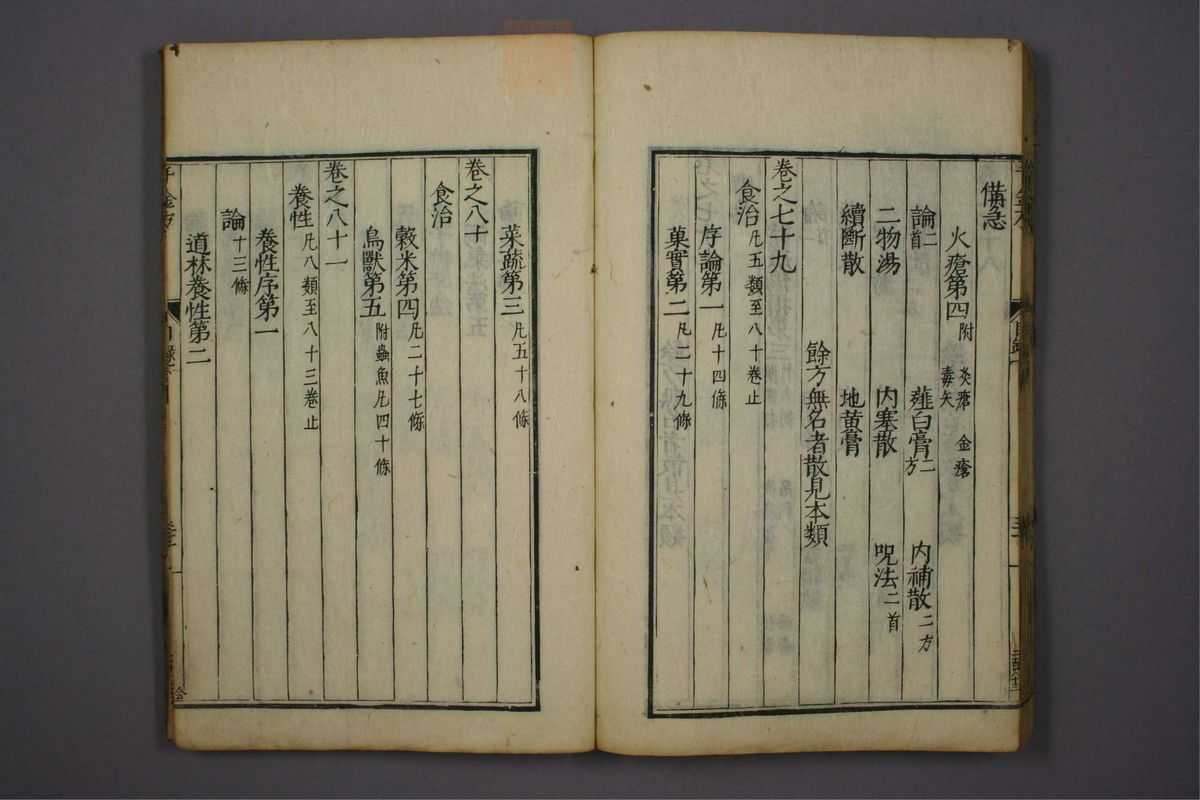 備急
火瘡第四 附 灸瘡 金瘡 毒矢
論二首 薤白膏二方 內補散二方
二物湯 內塞散 呪法二首
續斷散 地黃膏
餘方無名者散見本類
卷之七十九
食治凡五類至八十卷止
序論第一凡十四條
菓實第二凡二十九條
菜蔬第三凡五十八條
卷之八十
食治
穀米第四凡二十七條
鳥獸第五附蟲魚凡四十條
卷之八十一
養性凡八類至八十三卷止
養性序第一
論十三條
道林養性第二
千金方